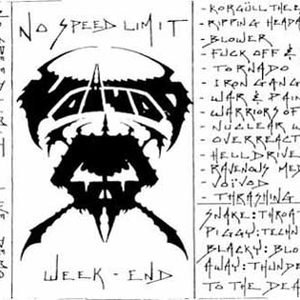 NO SPEED LIMIT
VOIVOD
WEEK-END
- KORGÜLL THE E
- RIPPING HEADA
- BLOWER
- FUCK OFF &
- TORNADO
- IRON GANG
- WAR & PAIN
- WARRIORS OF
- NUCLEAR W
- OVERREACT
- HELLDRIVE
- RAVENOUS ME
- VOÏVOD
- THRASHING
SNAKE: THROAT
PIGGY: TECHN
BLACKY: BLO
AWAY: THUNDE
TO THE DEA